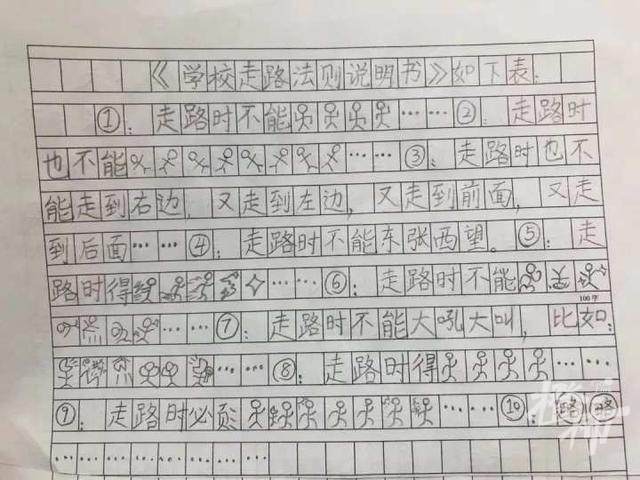 《学校走路法则说明书》如下表：
①：走路时不能……②：走路时
也不能……③：走路时也不
能走到右边，又走到左边，又走到前面，又走
到后面……④：走路时不能东张西望。⑤：走
路时得……⑥：走路时不能
100字
……⑦：走路时不能大吼大叫，比如：
……⑧：走路时得……
⑨：走路时必须……⑩：路路
………………